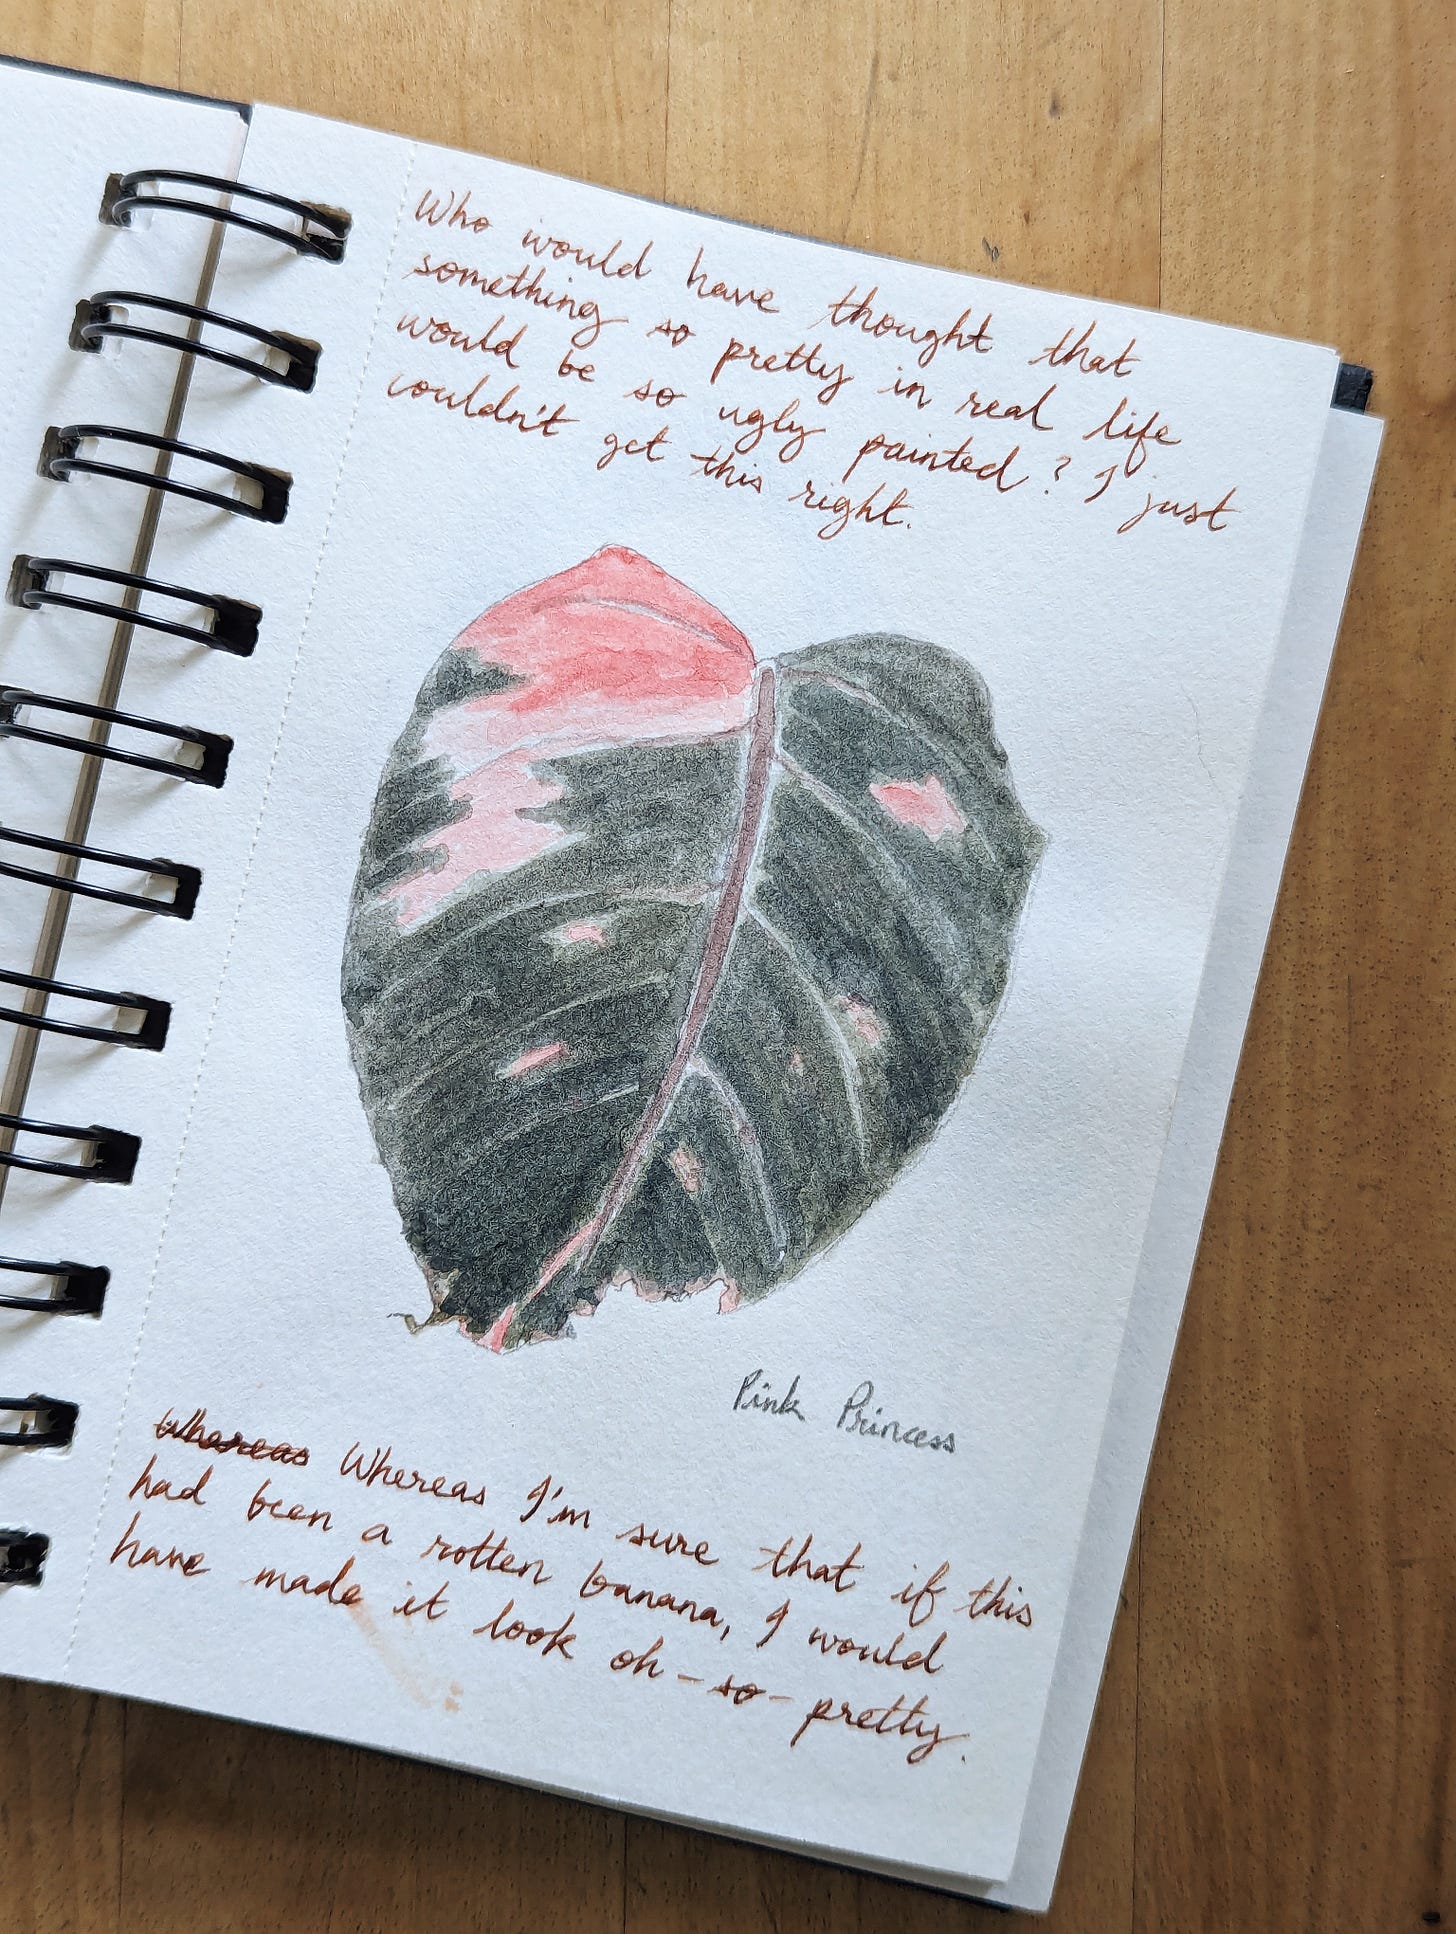 Who would have thought that
something so pretty in real life
would be so ugly painted? I just
couldn't get this right.
Pink Princess
Whereas Whereas I'm sure that if this
had been a rotten banana, I would
have made it look oh-so-pretty.